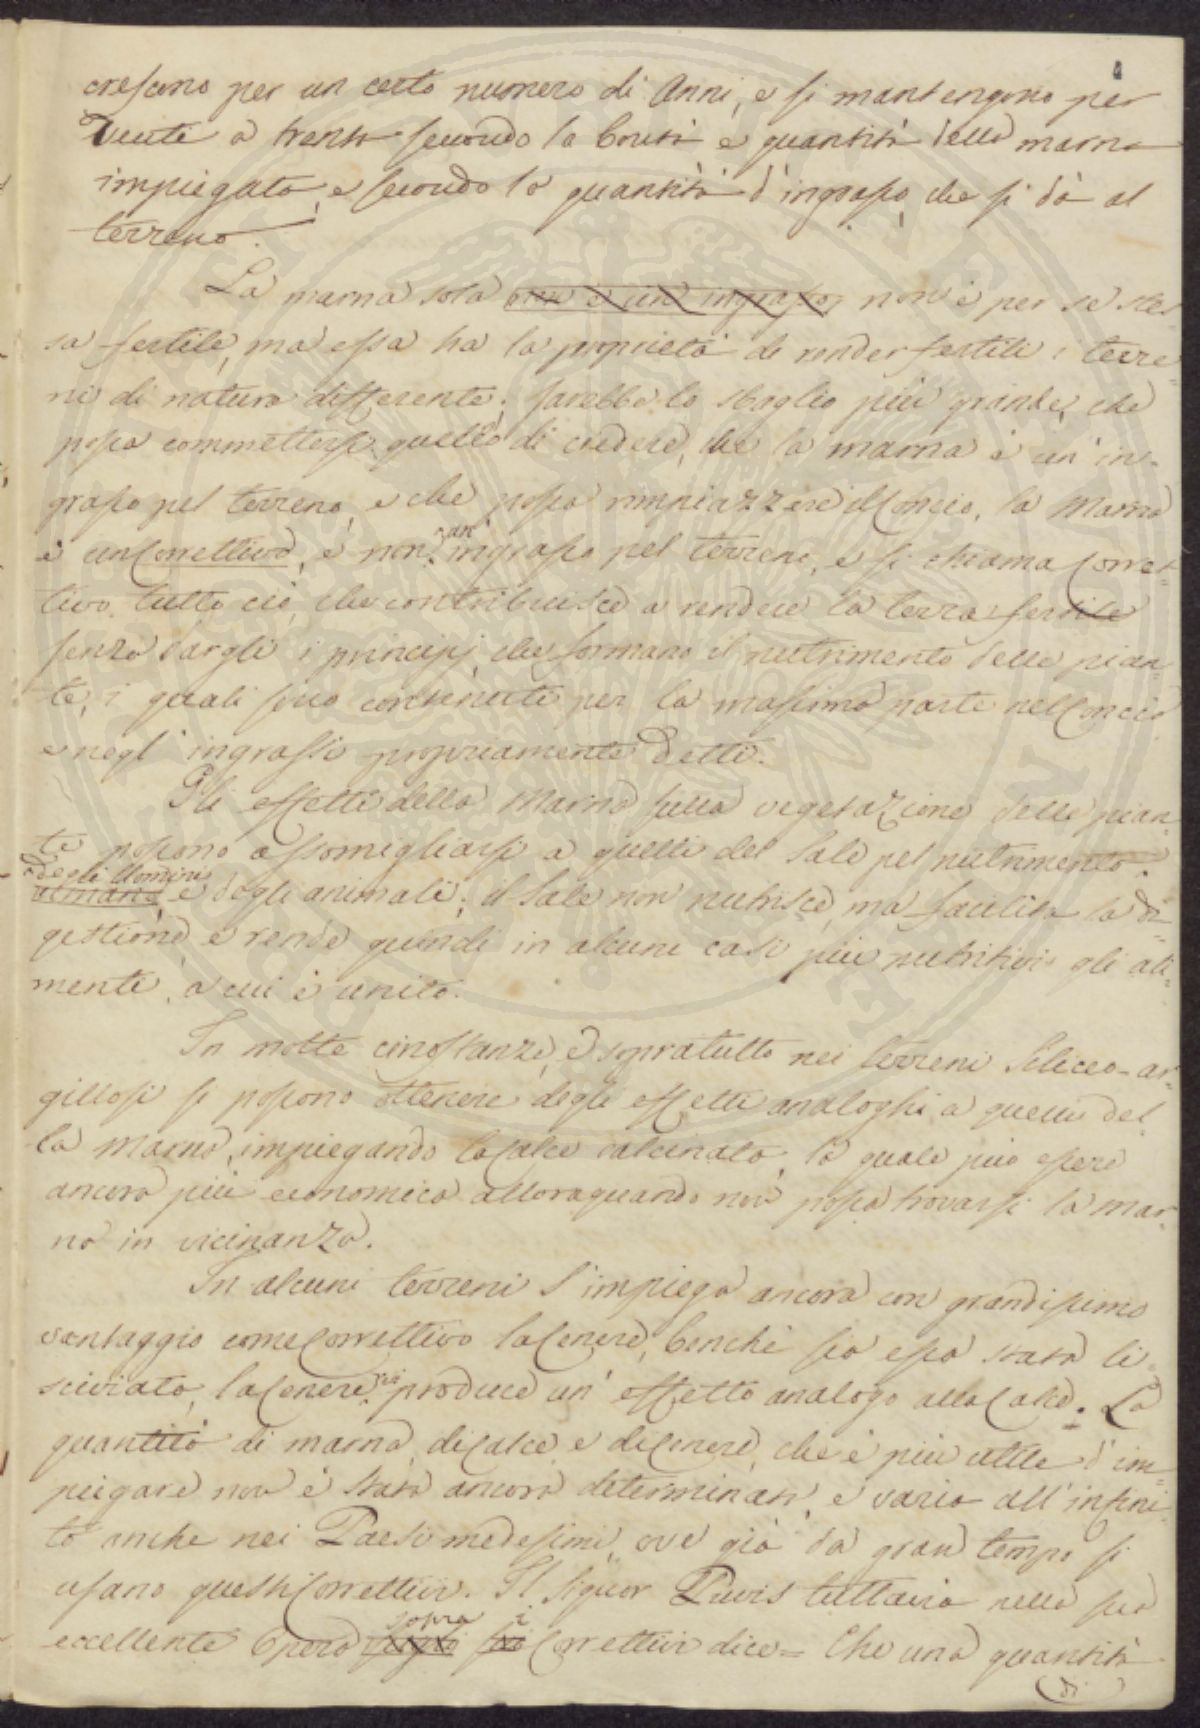 crescono per un certo numero di Anni, e si mantengono per
Venti a trenta secondo la bontà e quantità della marna
impiegata, e secondo la quantità d'ingrasso, che si dà al
terreno.
La marna sola non è un ingrasso, non è per se stes-
sa fertile, ma essa ha la proprietà di render fertili i terre-
ni di natura differente; sarebbe lo sbaglio più grande, che
possa commettersi quello di credere, che la marna è un' in-
grasso pel terreno, e che possa rimpiazzare il Concio, la Marna
è un Correttivo, e non un' ingrasso pel terreno, e si chiama Corret-
tivo tutto ciò, che contribuisce a rendere la terra fertile
senza dargli i principj, che formano il nutrimento delle pian-
te, i quali sono contenuti per la massima parte nel Concio
e negl' ingrassi propriamente detti.
Gli effetti della Marna sulla vegetazione delle pian-
te possono assomigliarsi a quelli del Sale pel nutrimento
degli Uomini
umano e degli animali; il Sale non nutrisce, ma facilita la di-
gestione, e rende quindi in alcuni casi più nutritivi gli ali-
menti, a cui è unito.
In molte circostanze, e sopratutto nei terreni Siliceo-ar-
gillosi si possono ottenere degli effetti analoghi a quelli del-
la Marna, impiegando la Calce calcinata, la quale può essere
ancora più economica alloraquando non possa trovarsi la mar-
na in vicinanza.
In alcuni terreni s'impiega ancora con grandissimo
vantaggio come Correttivo la Cenere, benchè sia essa stata li-
sciviata, la Cenere vi produce un' effetto analogo alla Calce. La
quantità di marna, di Calce, e di Cenere, che è più utile d'im-
piegare non è stata ancora determinata, e varia all'infini-
to anche nei Paesi medesimi, ove già da gran tempo si
usano questi Correttivi. Il Signor Puvis tuttavia nella sua
sopra i
eccellente Opera Correttivi dice = Che una quantità
(di)